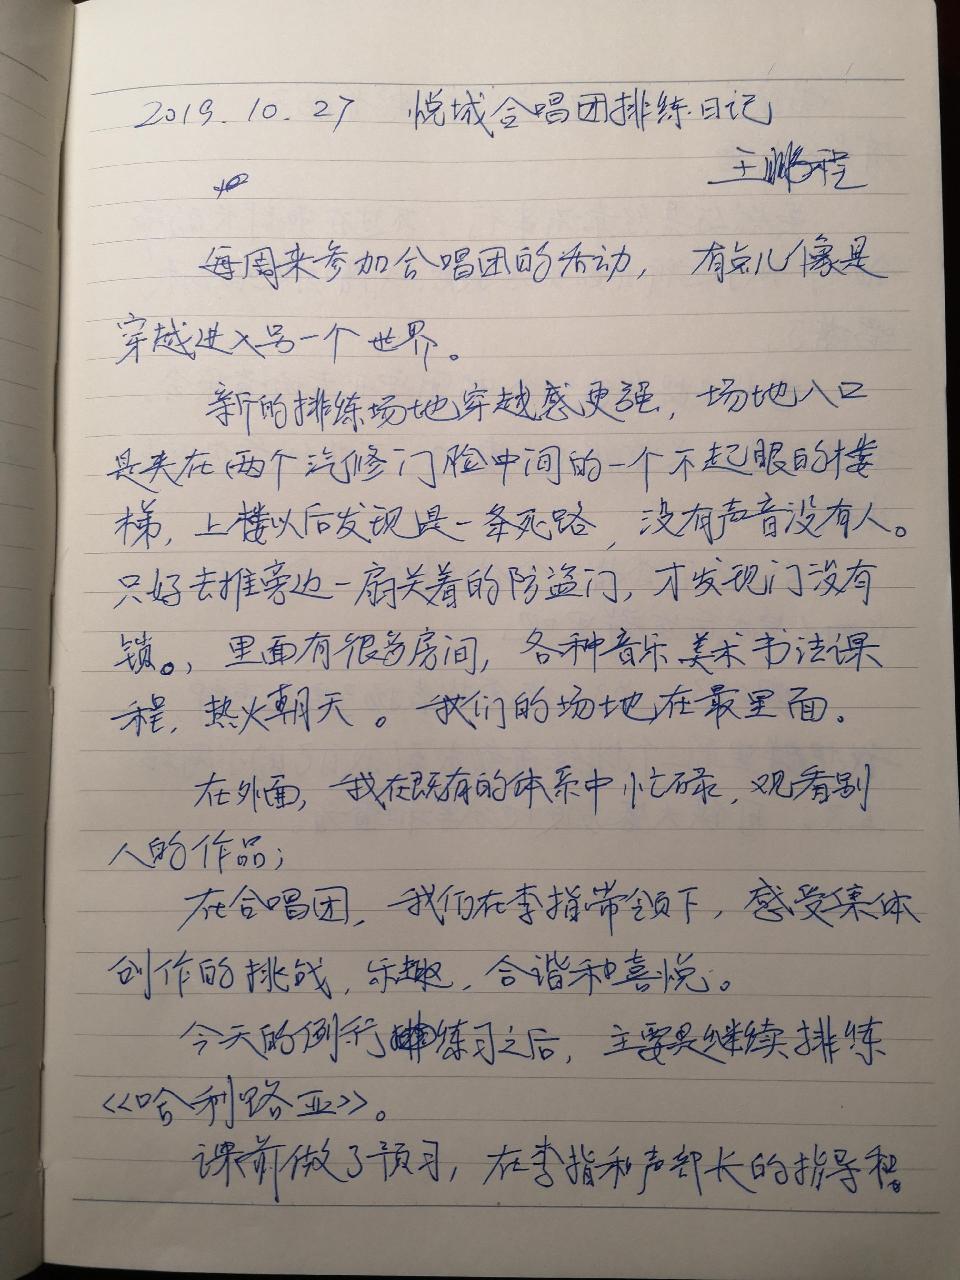 2019.10.27 悦城合唱团排练日记
王鹏程
每周来参加合唱团的活动，有点儿像是
穿越进入另一个世界。
新的排练场地穿越感更强，场地入口
是夹在两个汽修门脸中间的一个不起眼的楼
梯，上楼以后发现是一条死路，没有声音没有人。
只好去推旁边一扇关着的防盗门，才发现门没有
锁。，里面有很多房间，各种音乐美术书法课
程，热火朝天。我们的场地在最里面.
在外面，我在既有的体系中忙碌，观看别
人的作品；
在合唱团，我们在李指带领下，感受集体
创作的挑战，乐趣，合谐和喜悦。
今天的例行练习之后，主要是继续排练
《哈利路亚》。
课前做了预习，在李指和声部长的指导和